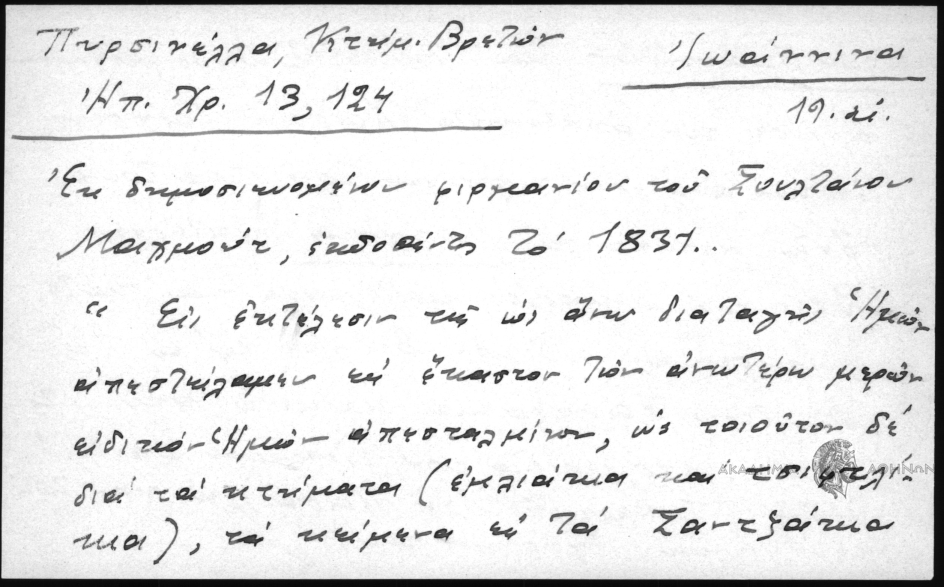 Πυρσινέλλα, Κτημ. Βρετών
Ἠπ. Χρ. 13, 124
Ἰωάννινα
19. αἰ.
Ἐκ δημοσιευομένου φιρμανίου τοῦ Σουλτάνου
Μαχμούτ, ἐκδοθέντος τὸ 1831..
“ Εἰς ἐκτέλεσιν τῆς ὡς ἄνω διαταγῆς Ἡμῶν
ἀπεστείλαμεν εἰς ἕκαστον τῶν ἀνωτέρω μερῶν
εἰδικόν Ἡμῶν ἀπεσταλμένον, ὡς τοιοῦτον δέ
διά τά κτήματα (ἐμλιάκια καί τσιφτλί-
κια), τά κείμενα εἰς τά Σαντζάκια
ΑΚΑΔΗΜ ΑΘΗΝΩΝ